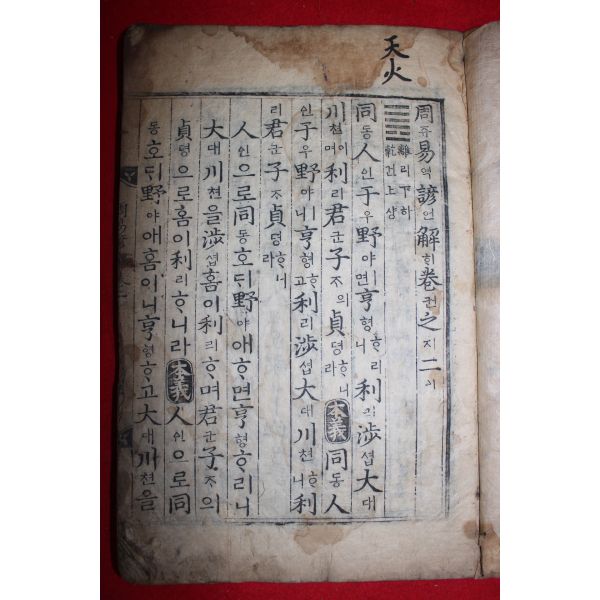 天火
周쥬易역諺언解ᄒᆡ卷권之지二이
䷌離리下하乾건上샹
同동人인于우野야ㅣ면亨형ᄒᆞ리니利리涉셥大대
川쳔이며利리君군子ᄌᆞ의貞뎡ᄒᆞ니라本義同동人
인于우野야ㅣ니亨형ᄒᆞ고利리涉셥大대川쳔ᄒᆞ니利
리君군子ᄌᆞ貞뎡ᄒᆞ니라
人인으로同동호ᄃᆡ野야애ᄒᆞ면亨형ᄒᆞ리니
大대川쳔을涉셥홈이利리ᄒᆞ며君군子ᄌᆞ의
貞뎡으로홈이利리ᄒᆞ니라本義人인으로同
동호ᄃᆡ野야애홈이니亨형ᄒᆞ고大대川쳔을